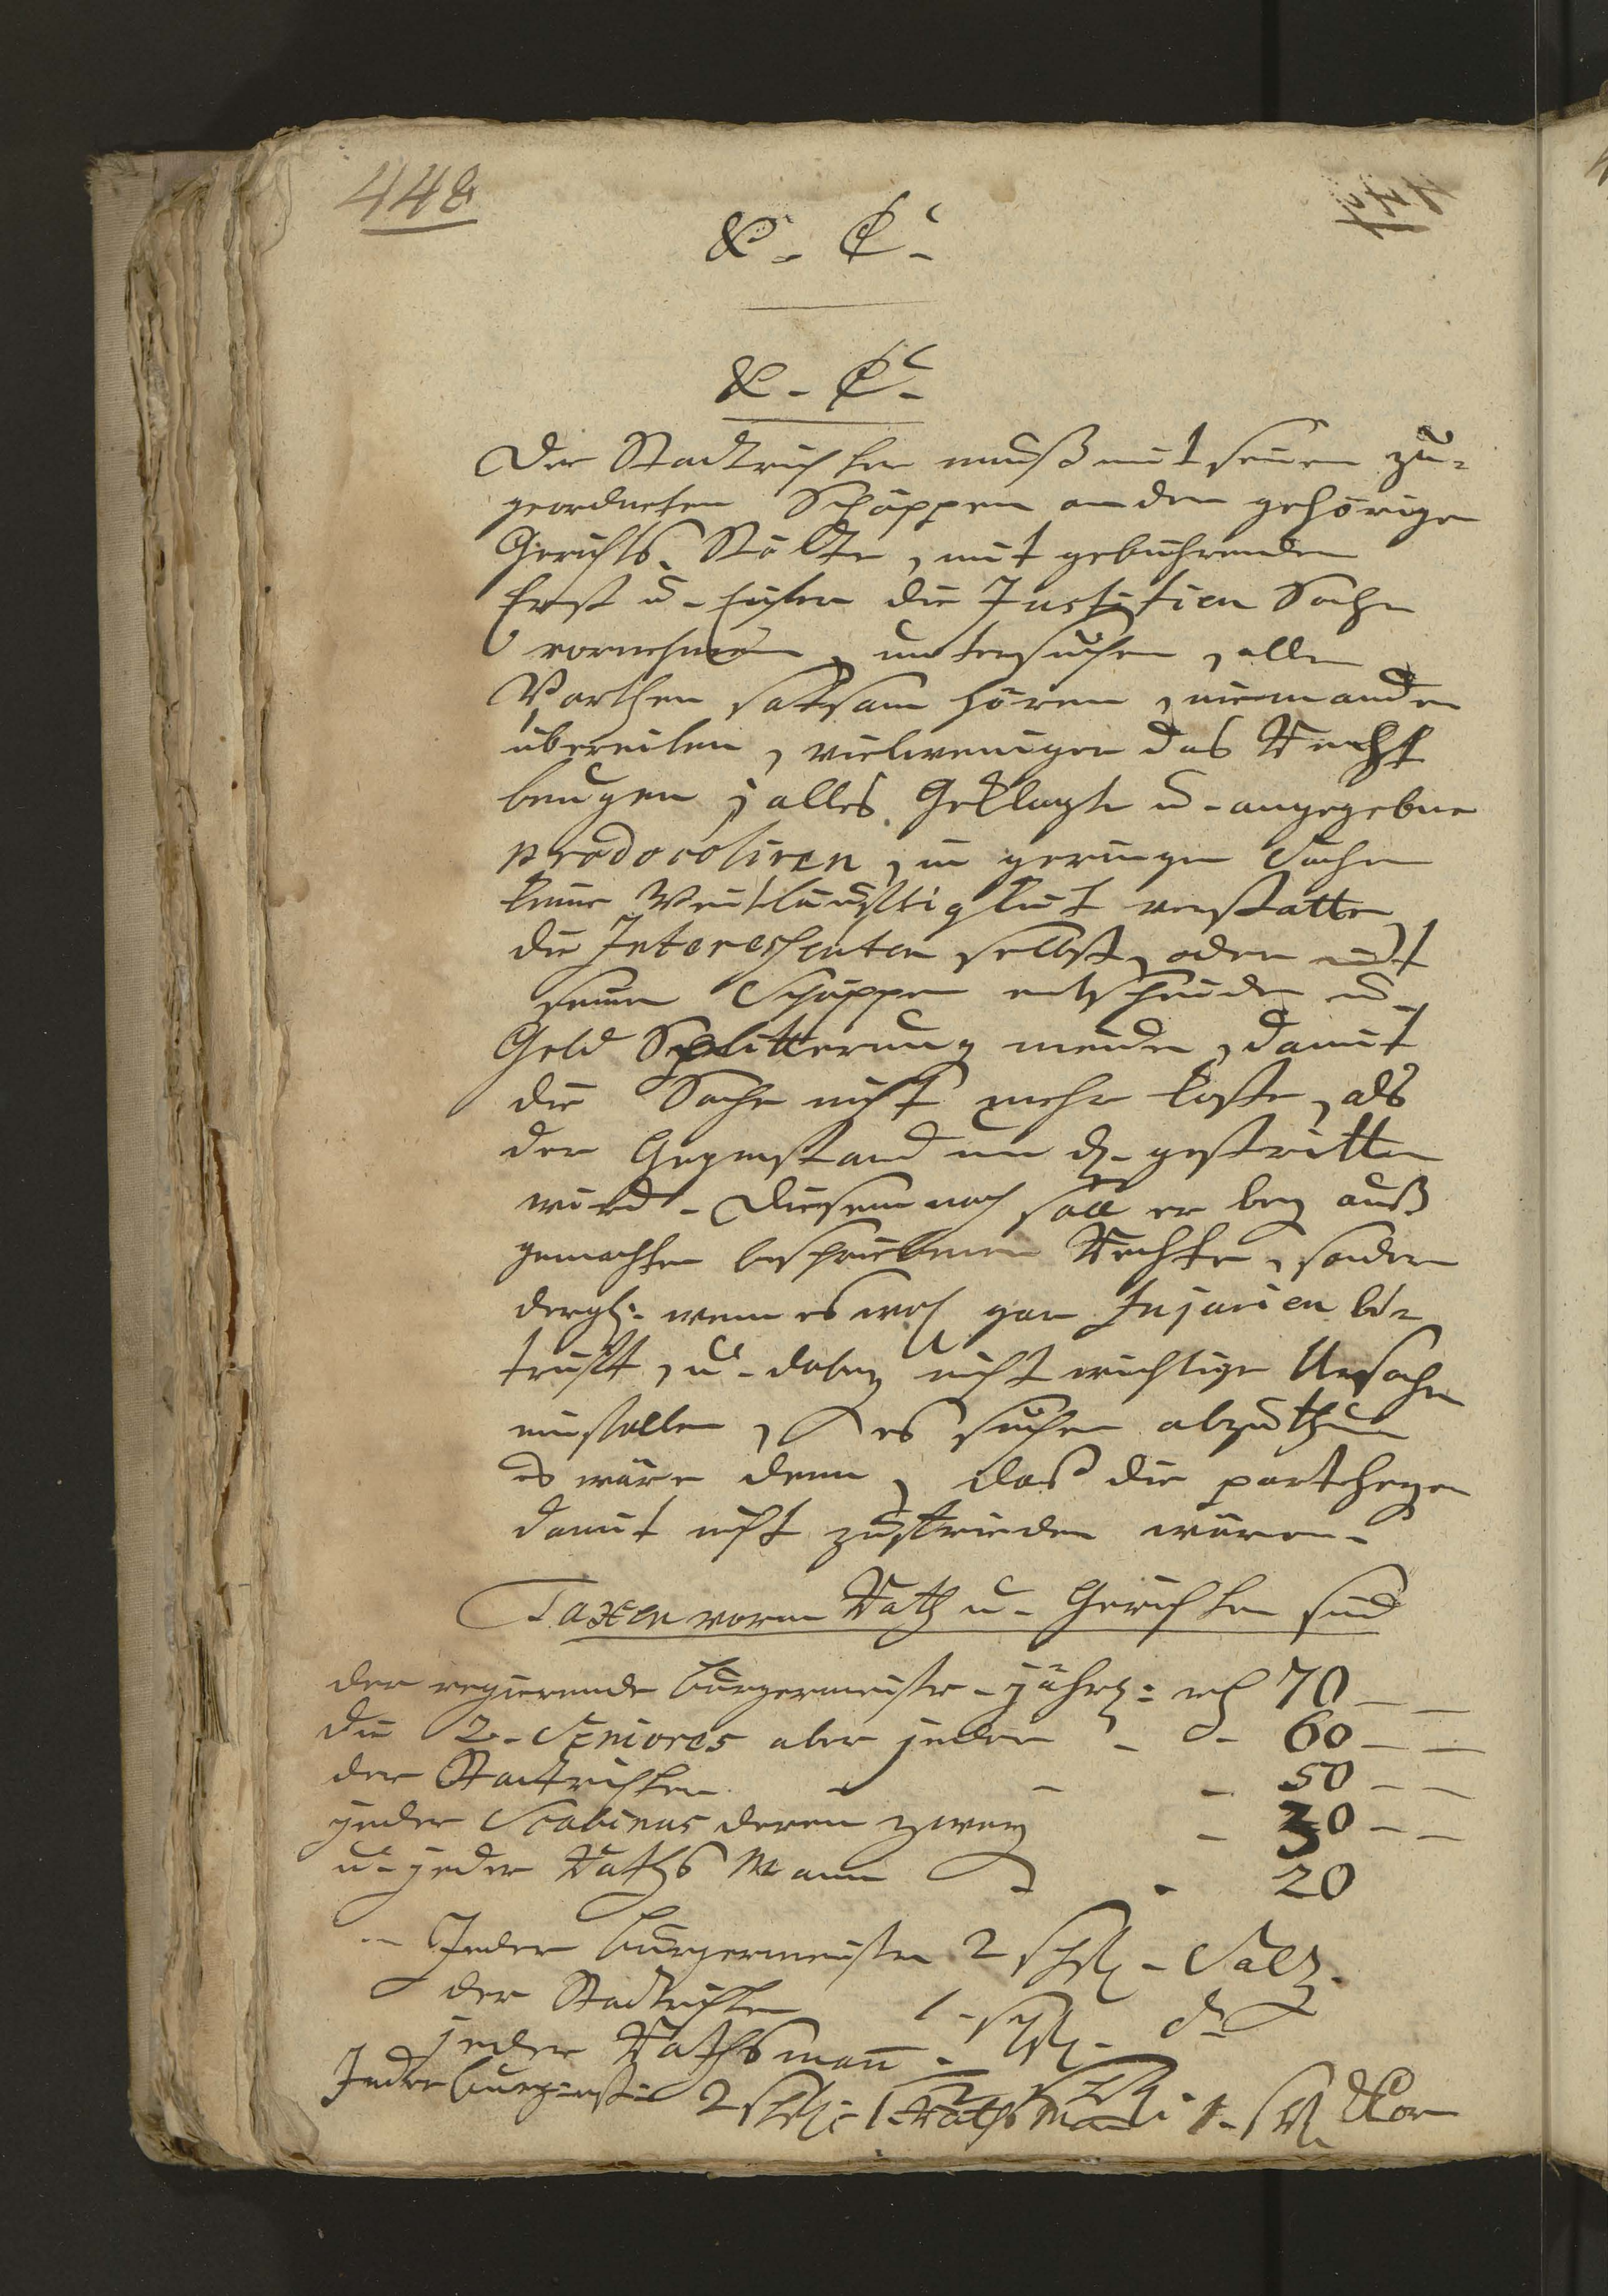 448
&. C.
&. C.
Der Stadtrichter muß mit seinen zu-
geordneten Schöppen an den gehörigen
Gerichts Stätte, mit gebührenden
Ernst u. die Justitien Sache
vornehmen, untersuchen, allen
Parthen satsam hören, niemanden
übereilen, vielweniger das Recht
beugen, alles Geklagte u. angegebne
prodocoliren, in geringen Sachen
keine Weitläuftigkeit verstatten
die Interessenten selbst, oder mit
seinen Schöppen entscheiden u.
Geld Splitterung meiden, damit
die Sache nicht mehr koste, als
der Gegenstand um d. gestritten
wird. Diesem nach soll er bey auß
gemachten beschriebenen Rechte, sondern
dergl: wenn es noch gar Injurien be-
trifft, u. dabey nicht wichtige Ursachen
einfallen, es suchen abzuthun
es wäre denn, daß die partheyen
damit nicht zufrieden wären.
Taxen vorm Rath u. Gerichten sind
der regierende Bürgermeister jährl: rth 70 — —
die 2. Seniores aber jeder - d. 60 — —
der Stadtrichter - - 50 — —
jeder Scabinus deren zwey - 30 — —
u. jeder Raths Mann - 20
Jeder Bürgermeister 2 schfl. Saltz.
der Stadtrichter 1. schfl. do
jeder Rathsmann
Jeder Burgmstr 2 schfl: 1. Rathsman 1. schfl Kor